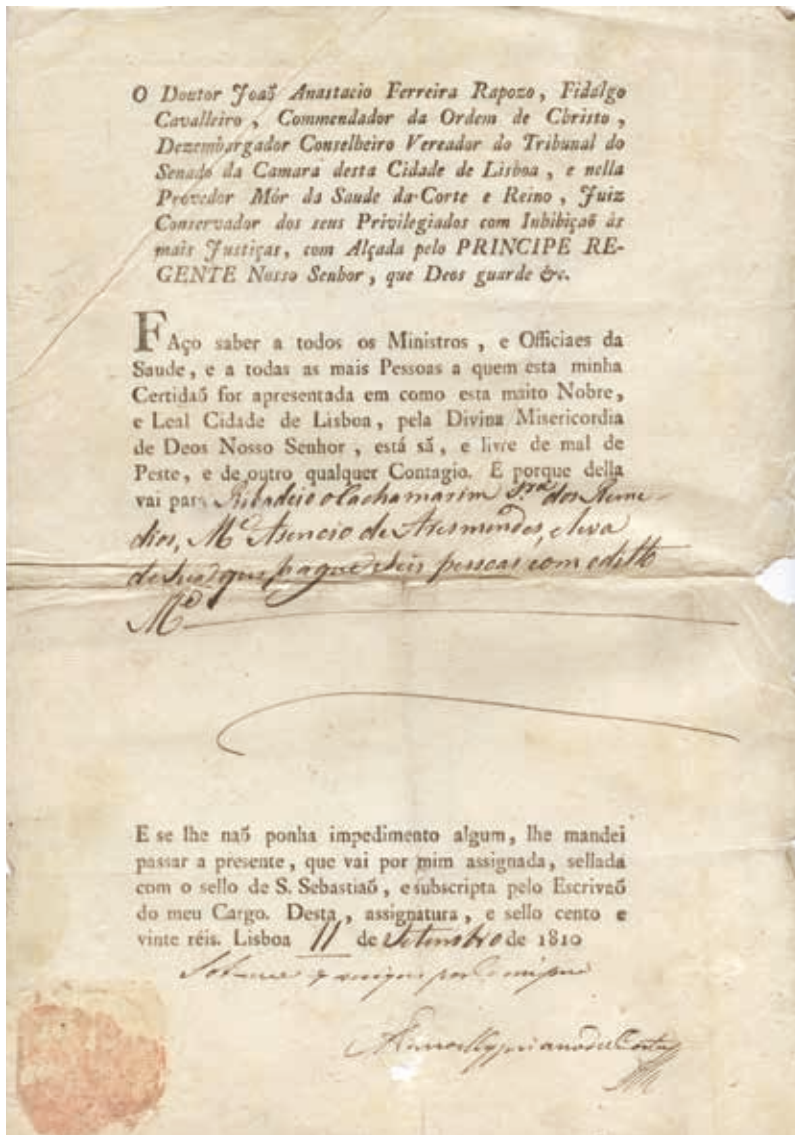 O Doutor Joaõ Anastacio Ferreira Rapozo, Fidalgo
Cavalleiro, Commendador da Ordem de Christo,
Dezembargador Conselheiro Vereador do Tribunal do
Senado da Camara desta Cidade de Lisboa, e nella
Provedor Mór da Saude da Corte e Reino, Juiz
Conservador dos seus Privilegiados com Inhibiçaõ ás
mais Justiças, com Alçada pelo PRINCIPE RE-
GENTE Nosso Senhor, que Deos guarde &c.
FAço saber a todos os Ministros, e Officiaes da
Saude, e a todas as mais Pessoas a quem esta minha
Certidaõ for apresentada em como esta muito Nobre,
e Leal Cidade de Lisboa, pela Divina Misericordia
de Deos Nosso Senhor, está sã, e livre de mal de
Peste, e de outro qualquer Contagio. E porque della
vai para Ribadeio o Cachamarim Sra. dos Reme-
dios, Me. Asencio de Aresmendes, e leva
de sua que pague seis pessoas com o ditto
Me.
E se lhe naõ ponha impedimento algum, lhe mandei
passar a presente, que vai por mim assignada, sellada
com o sello de S. Sebastiaõ, e subscripta pelo Escrivaõ
do meu Cargo. Desta, assignatura, e sello cento e
vinte réis. Lisboa 11 de Setembro de 1810